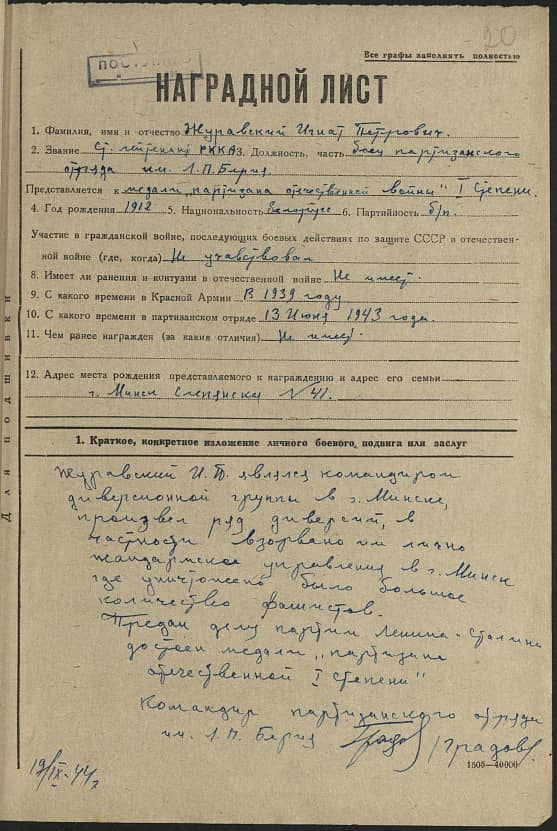 20
Все графы заполнять полностью
ПОСТУПИЛО
НАГРАДНОЙ ЛИСТ
1. Фамилия, имя и отчество Журавский Игнат Петрович.
2. Звание Ст. лейтенант РККА 3. Должность, часть боец партизанского
отряда им. Л.П. Берия
Представляется к медали „партизана отечественной войны" I степени.
4. Год рождения 1912 5. Национальность Белорусс 6. Партийность б/п.
Участие в гражданской войне, последующих боевых действиях по защите СССР в отечествен-
ной войне (где, когда) Не учавствовал
8. Имеет ли ранения и контузии в отечественной войне Не имеет.
9. С какого времени в Красной Армии В 1939 году
10. С какого времени в партизанском отряде 13 Июня 1943 года.
11. Чем ранее награжден (за какия отличия) Не имеет.
12. Адрес места рождения представляемого к награждению и адрес его семьи
г. Минск Слепянску № 41.
Для подшивки
1. Краткое, конкретное изложение личного боевого подвига или заслуг
Журавский И. П. являлся командиром
диверсионной группы в г. Минске,
произвел ряд диверсий, в
частности взорвано им лично
жандармское управления в г. Минск
где уничтожено было большое
количество фашистов.
Предан делу партии Ленина-Сталина
достоен медали „партизана
отечественной I степени"
Командир партизанского отряда
им. Л. П. Берия Градов /Градов/.
1505—40000
19/IX-44г